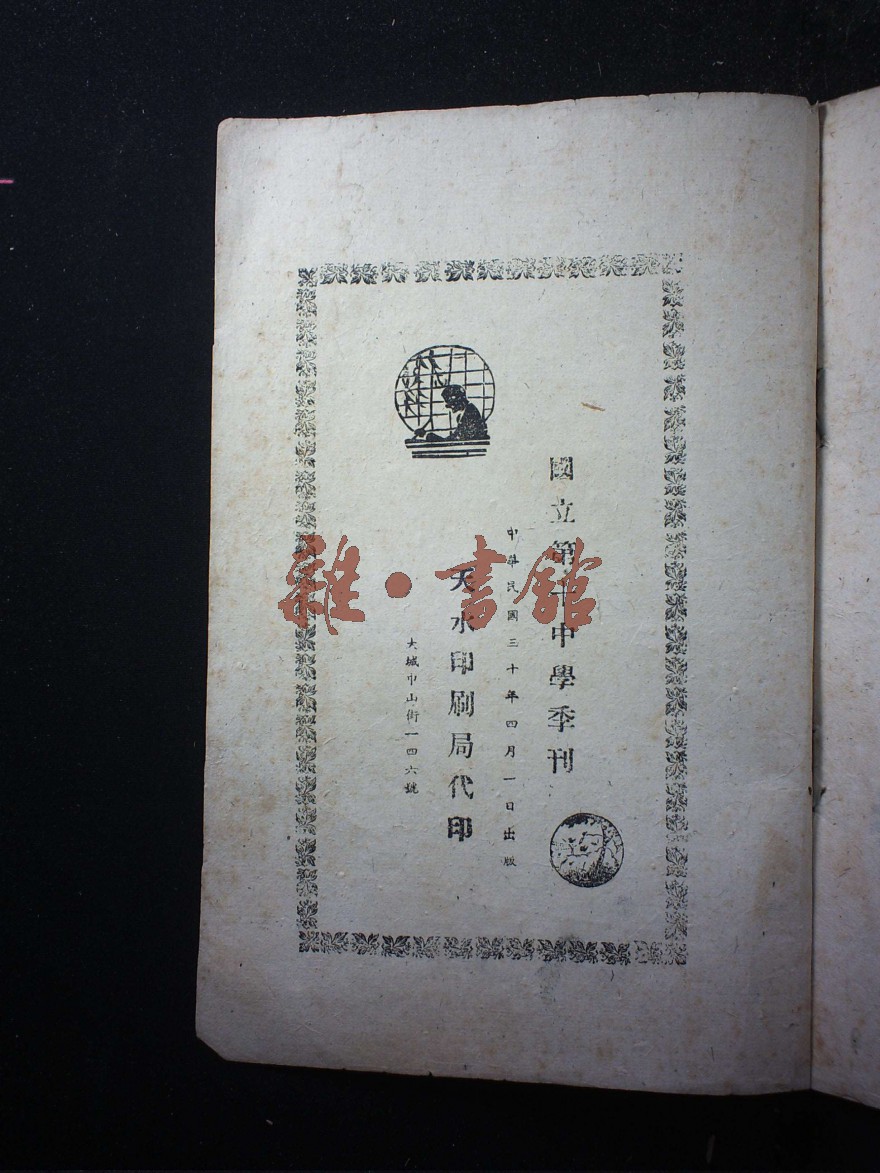 國立第十中學季刊
中華民國三十年四月一日出版
天水印刷局代印
大城中山街一四六號
雜·書館